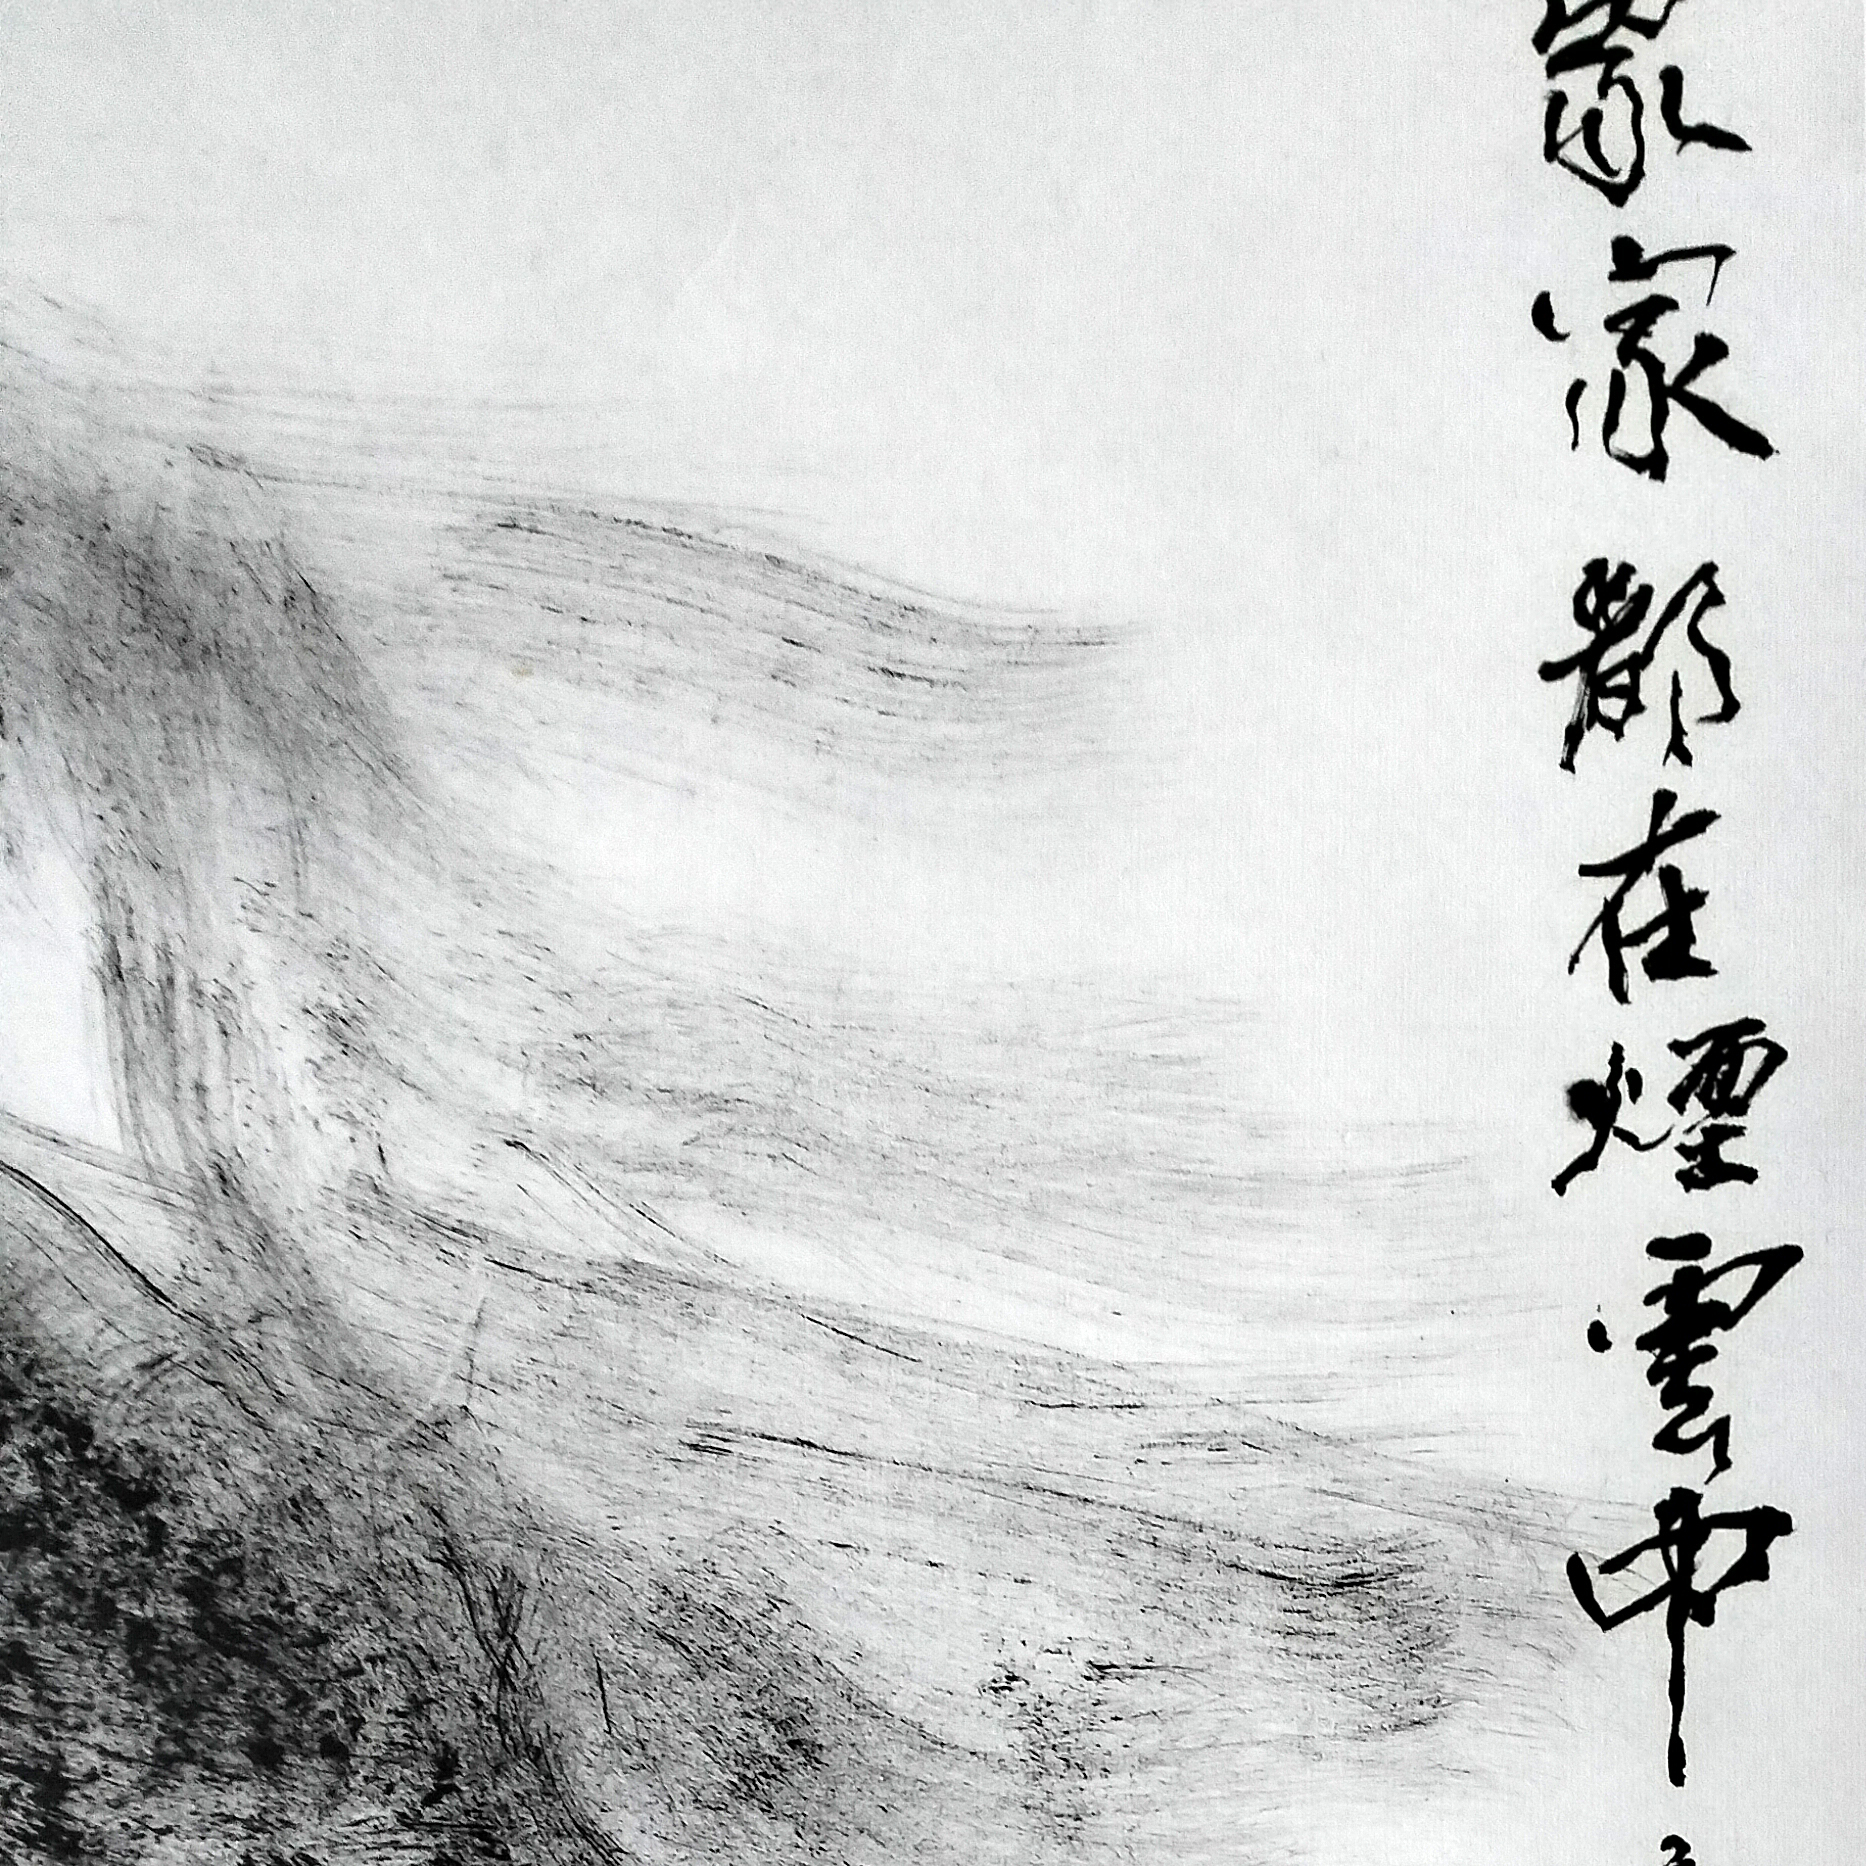 家都在煙雲中